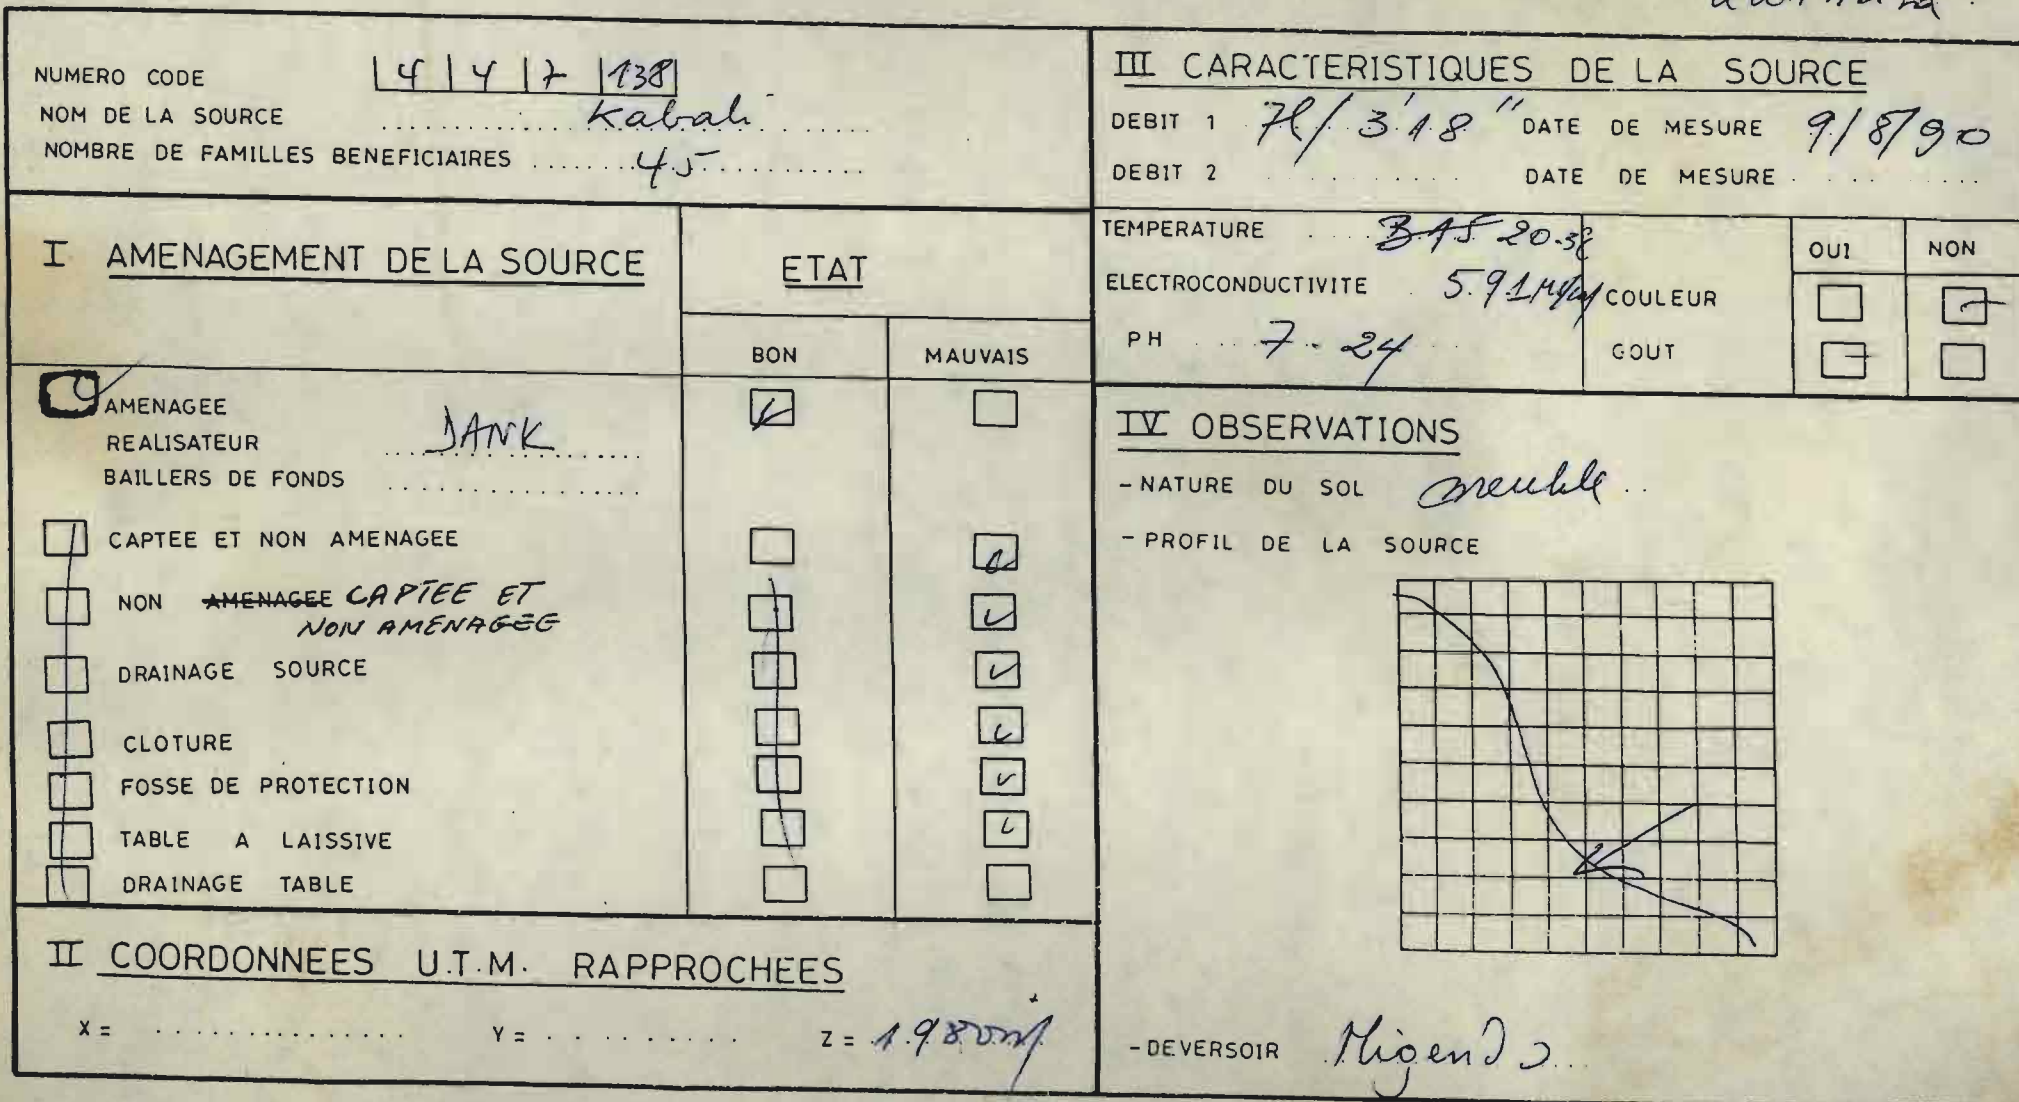 NUMERO CODE |4|4|7|138|
NOM DE LA SOURCE Kabali
NOMBRE DE FAMILLES BENEFICIAIRES 45
I AMENAGEMENT DE LA SOURCE
ETAT
BON MAUVAIS
AMENAGEE
REALISATEUR DANK
BAILLERS DE FONDS
CAPTEE ET NON AMENAGEE
NON AMENAGEE CAPTEE ET
NON AMENAGEE
DRAINAGE SOURCE
CLOTURE
FOSSE DE PROTECTION
TABLE A LAISSIVE
DRAINAGE TABLE
II COORDONNEES U.T.M. RAPPROCHEES
X = Y = Z = 1.980m
III CARACTERISTIQUES DE LA SOURCE
DEBIT 1 7l/3'18" DATE DE MESURE 9/8/90
DEBIT 2 DATE DE MESURE
TEMPERATURE 20.3
ELECTROCONDUCTIVITE 5.91
PH 7.24
OUI NON
COULEUR
GOUT
IV OBSERVATIONS
- NATURE DU SOL meuble
- PROFIL DE LA SOURCE
- DEVERSOIR Migendo